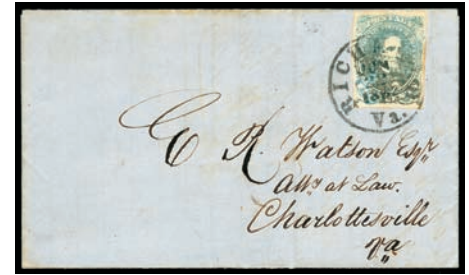 POSTAGE
RICH
Va.
C R. Watson Esqr
Atty at Law.
Charlottesville
Va